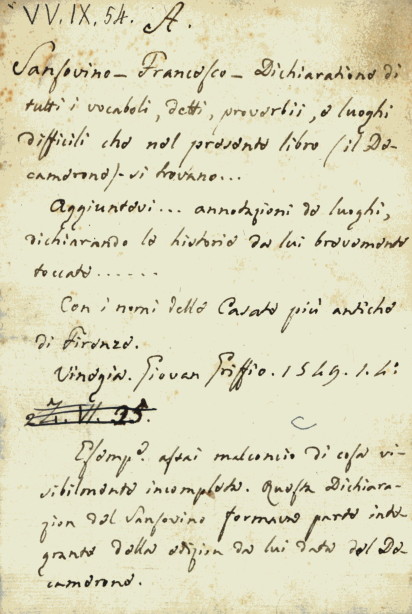 VV. IX. 54. A.
Sansovino - Francesco - Dichiaratione di
tutti i vocaboli, detti, proverbii, e luoghi
difficili che nel presente libro (il De-
camerone) - si trovano...
Aggiuntevi... annotazioni de luoghi,
dichiarando le historie da lui brevemente
toccate......
Con i nomi delle Casate più antiche
di Firenze.
Vinegia. Giovan Griffio. 1549. 1. 4:
Esemp°. assai malconcio di cosa vi-
sibilmente incompleta. Questa Dichiara-
zion del Sansovino formava parte inte-
grante della edizion da lui data del De-
camerone.